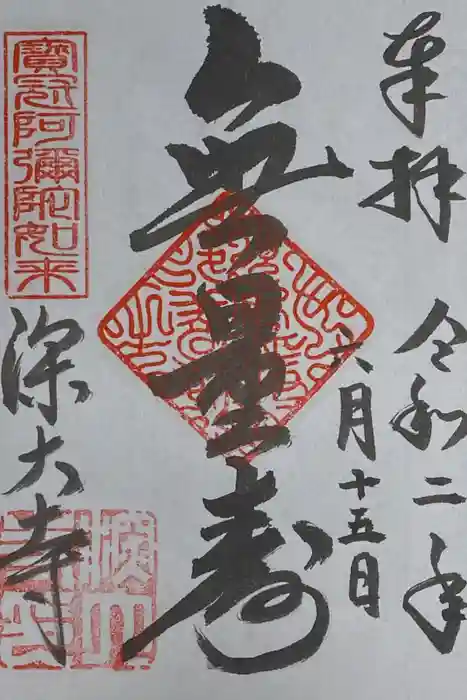 奉拝
令和二年
六月十五日
無量寿
寶冠阿彌陀如来
深大寺